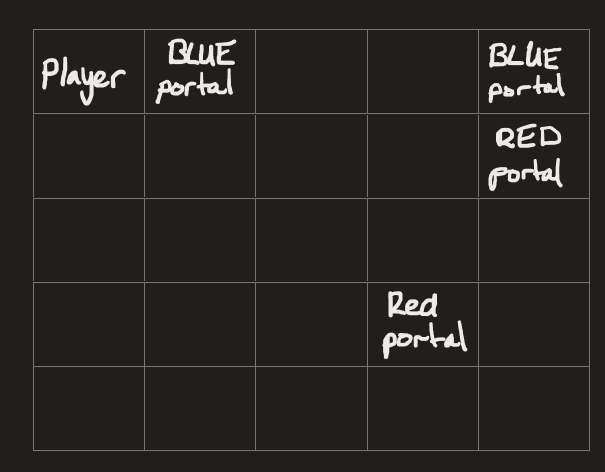 Player
BLUE
portal
BLUE
portal
RED
portal
Red
portal